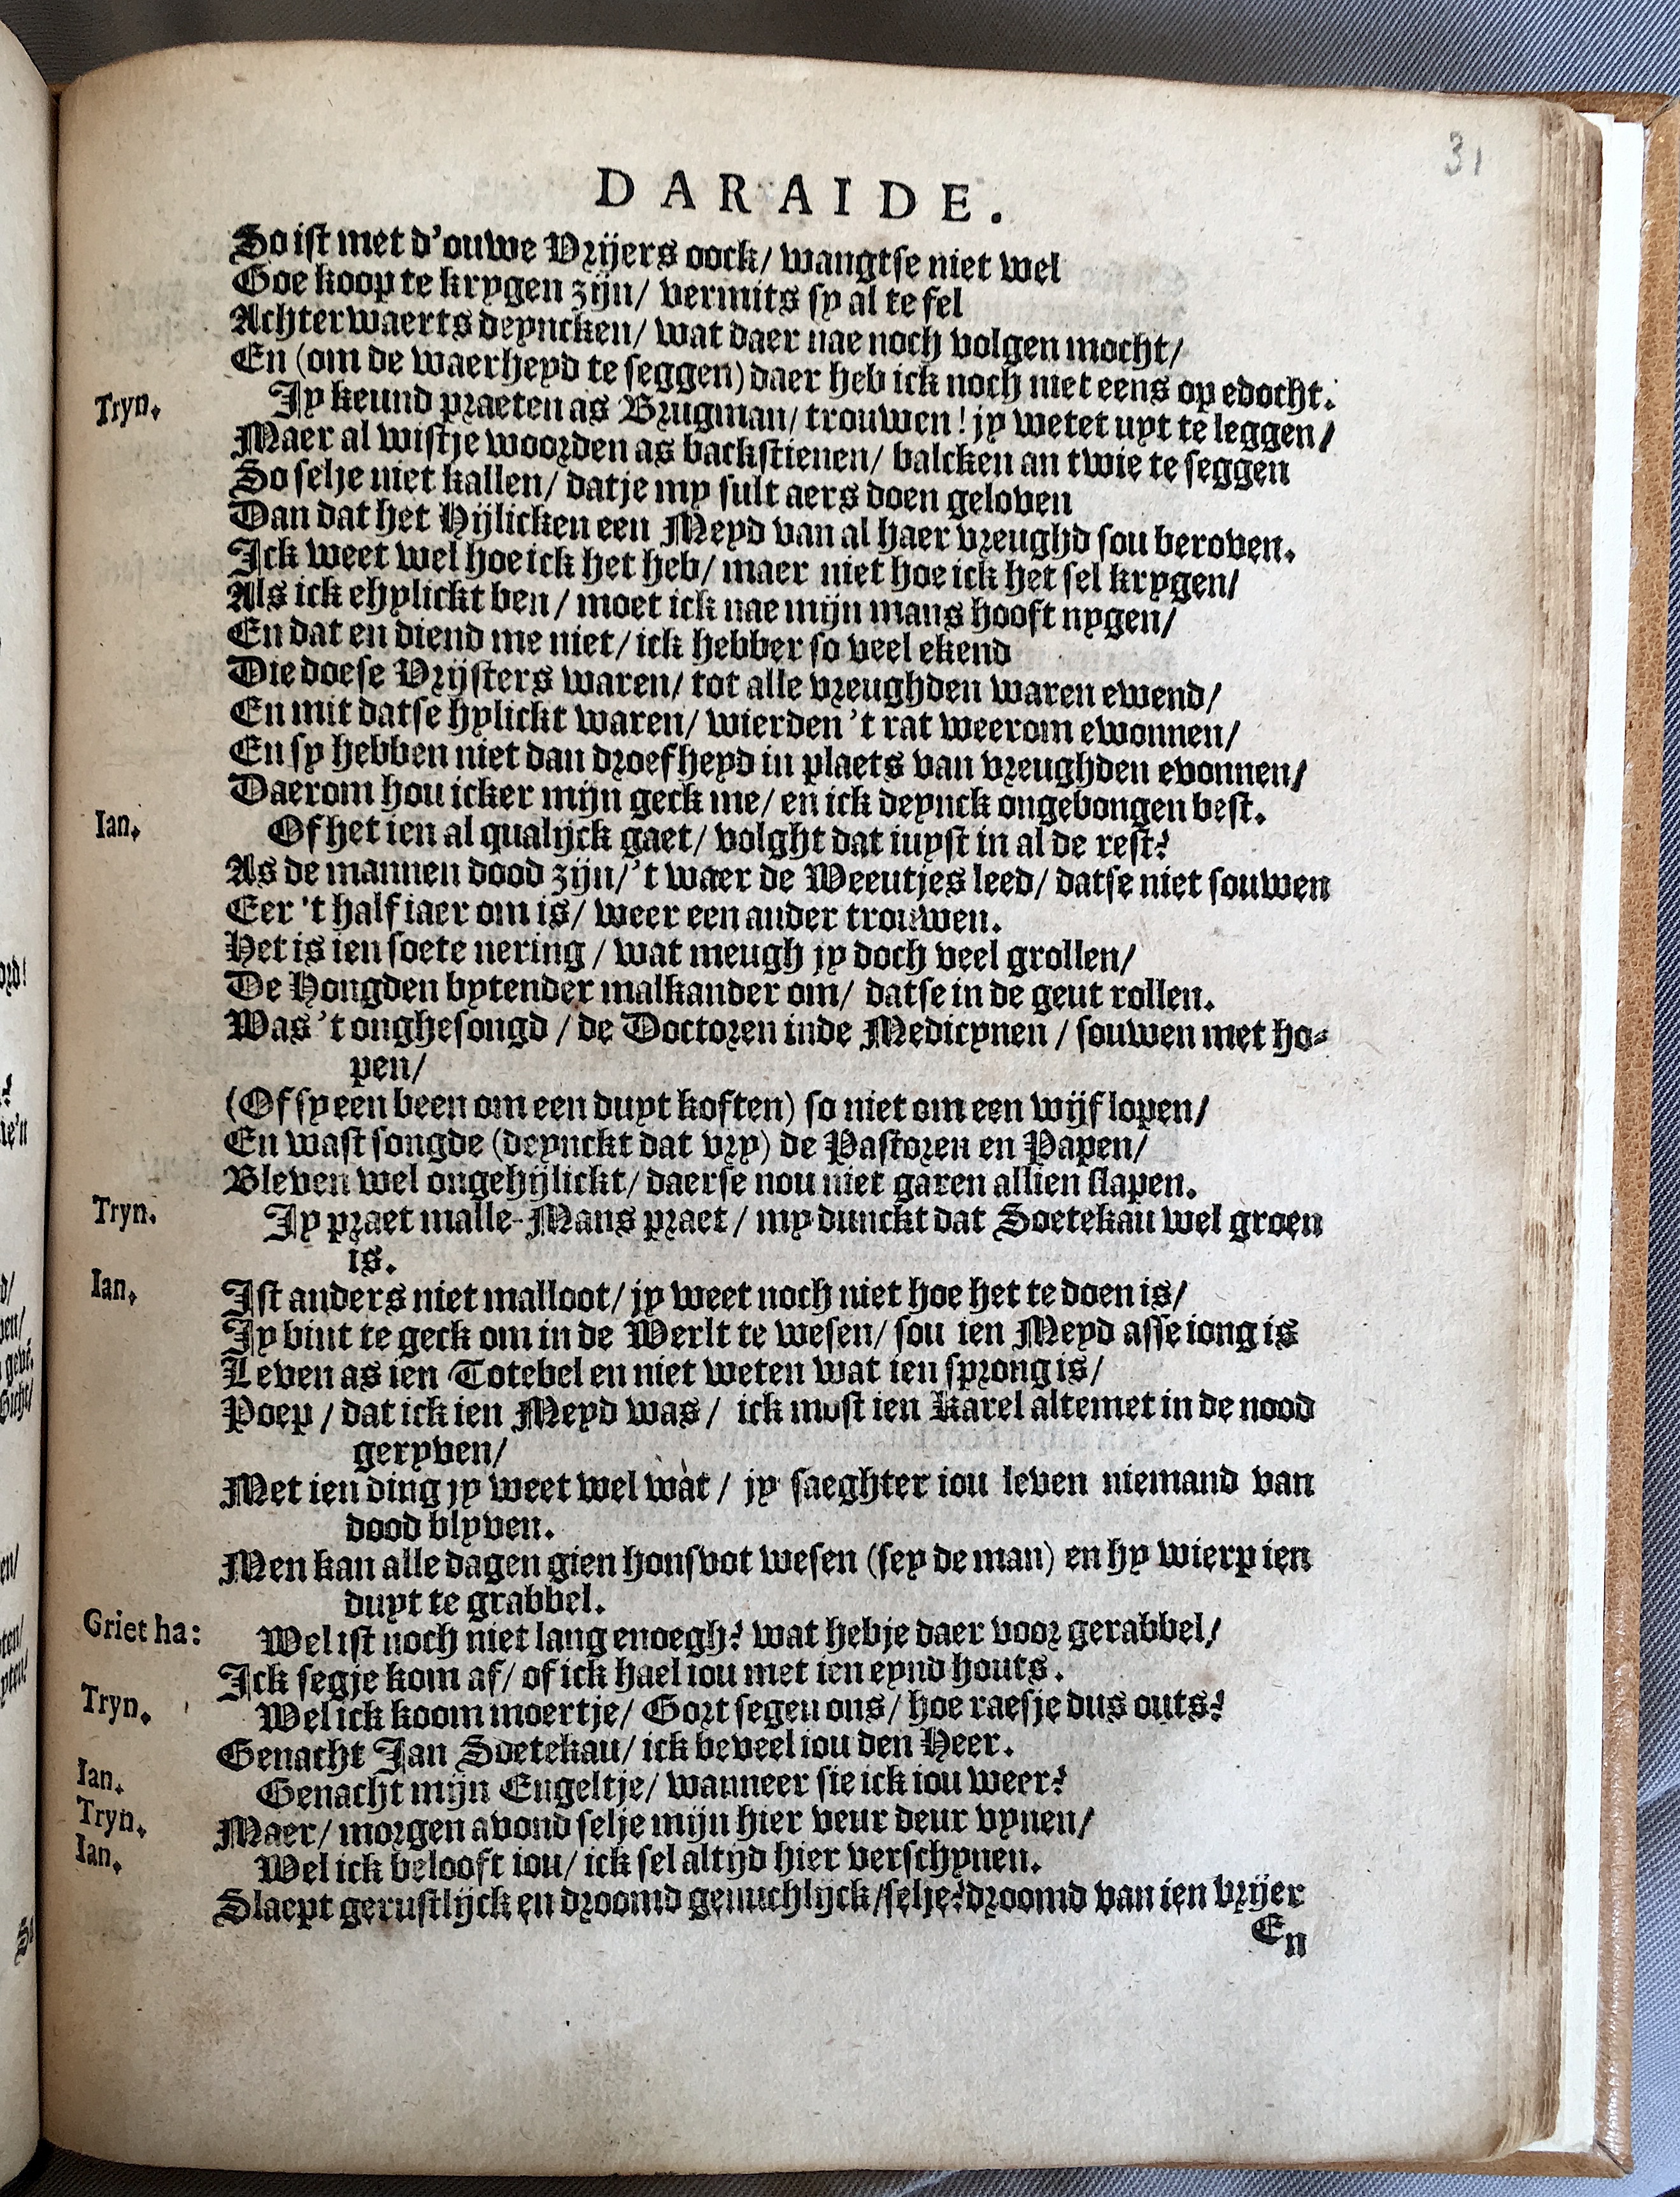 31
DARAIDE.
So ist met d'ouwe Vrijers oock/ wangtse niet wel
Goe koop te krygen zijn/ vermits sy al te fel
Achterwaerts deyncken/ wat daer nae noch volgen mocht/
En (om de waerheyd te seggen) daer heb ick noch niet eens op edocht.
Tryn. Jy keund praeten as Brugman/ trouwen! jy wetet uyt te leggen/
Maer al wistje woorden as backstienen/ balcken an twie te seggen
So selje niet kallen/ datje my sult aers doen geloven
Dan dat het Hijlicken een Meyd van al haer vreughd sou beroven.
Ick weet wel hoe ick het heb/ maer niet hoe ick het sel krygen/
Als ick ehylickt ben/ moet ick nae mijn mans hooft nygen/
En dat en diend me niet/ ick hebber so veel ekend
Die doese Vrijsters waren/ tot alle vreughden waren ewend/
En mit datse hylickt waren/ wierden 't rat weerom ewonnen/
En sy hebben niet dan droefheyd in plaets van vreughden evonnen/
Daerom hou icker mijn geck me/ en ick deynck ongebongen best.
Ian. Of het ien al qualijck gaet/ volght dat iuyst in al de rest?
As de mannen dood zijn/ 't waer de Weeutjes leed/ datse niet souwen
Eer 't half iaer om is/ weer een ander trouwen.
Het is ien soete nering/ wat meugh jy doch veel grollen/
De Hongden bytender malkander om/ datse in de geut rollen.
Was 't onghesongd/ de Doctoren inde Medicynen/ souwen met ho-
pen/
(Of sy een been om een duyt koften) so niet om een wijf lopen/
En wast songde (deynckt dat vry) de Pastoren en Papen/
Bleven wel ongehijlickt/ daerse nou niet garen allien slapen.
Tryn. Jy praet malle-Mans praet/ my dunckt dat Soetekau wel groen
is.
Ian. Ist anders niet malloot/ jy weet noch niet hoe het te doen is/
Jy bint te geck om in de Werlt te wesen/ sou ien Meyd asse iong is
Leven as ien Totebel en niet weten wat ien sprong is/
Poep/ dat ick ien Meyd was/ ick most ien Karel altemet in de nood
geryven/
Met ien ding jy weet wel wàt/ jy saeghter iou leven niemand van
dood blyven.
Men kan alle dagen gien honsvot wesen (sey de man) en hy wierp ien
duyt te grabbel.
Griet ha: Wel ist noch niet lang enoegh? wat hebje daer voor gerabbel/
Ick segje kom af/ of ick hael iou met ien eynd houts.
Tryn. Wel ick koom moertje/ Gort segen ons/ hoe raesje dus outs?
Genacht Jan Soetekau/ ick beveel iou den Heer.
Ian. Genacht mijn Engeltje/ wanneer sie ick iou weer?
Tryn. Maer/ morgen avond selje mijn hier veur deur vynen/
Ian. Wel ick belooft iou/ ick sel altijd hier verschynen.
Slaept gerustlijck en droomd genuchlijck/ selje? droomd van ien vrijer
En